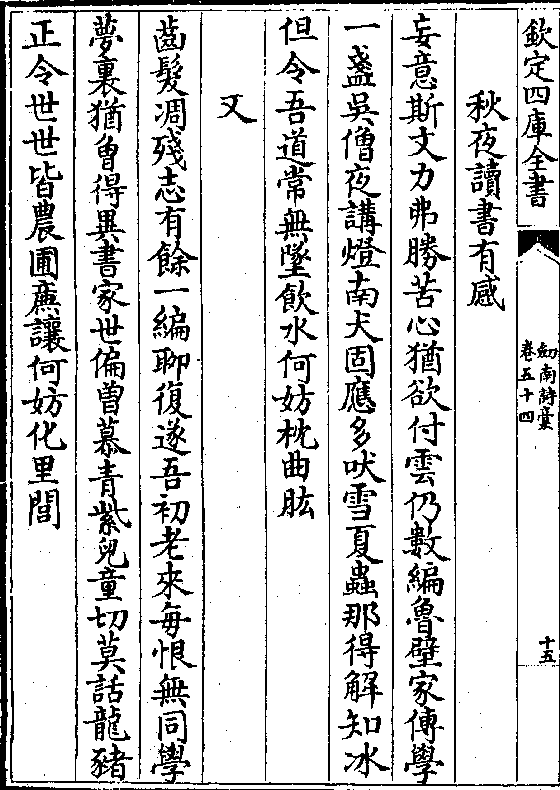 欽定四庫全書
劒南詩藁
卷五十四
十五
秋夜讀書有感
妄意斯文力弗勝苦心猶欲付雲仍數編魯壁家傳學
一盞吳僧夜講燈南犬固應多吠雪夏蟲那得解知冰
但令吾道常無墜飲水何妨枕曲肱
又
齒髮凋殘志有餘一編聊復遂吾初老來每恨無同學
夢裏猶曾得異書家世偏曽慕青紫兒童切莫話龍豬
正令世世皆農圃廉讓何妨化里閭